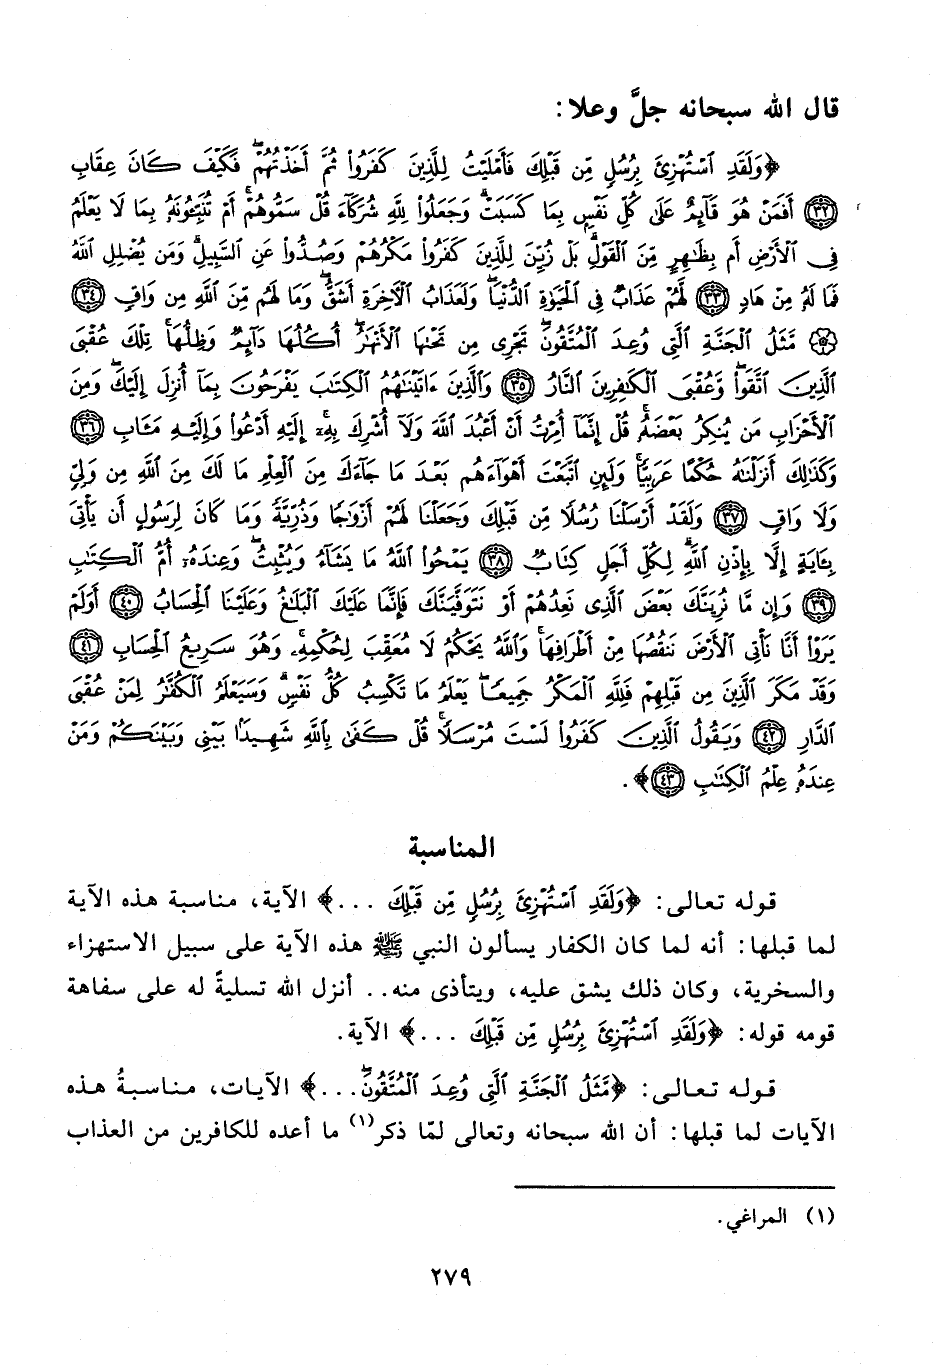 قال الله سبحانه جلَّ وعلا:
﴿وَلَقَدِ ٱسْتُهْزِئَ بِرُسُلٍ مِّن قَبْلِكَ فَأَمْلَيْتُ لِلَّذِينَ كَفَرُوا۟ ثُمَّ أَخَذْتُهُمْ ۖ فَكَيْفَ كَانَ عِقَابِ
٣٢ أَفَمَنْ هُوَ قَآئِمٌ عَلَىٰ كُلِّ نَفْسٍۭ بِمَا كَسَبَتْ ۗ وَجَعَلُوا۟ لِلَّهِ شُرَكَآءَ قُلْ سَمُّوهُمْ ۚ أَمْ تُنَبِّـُٔونَهُۥ بِمَا لَا يَعْلَمُ
فِى ٱلْأَرْضِ أَم بِظَـٰهِرٍ مِّنَ ٱلْقَوْلِ ۗ بَلْ زُيِّنَ لِلَّذِينَ كَفَرُوا۟ مَكْرُهُمْ وَصُدُّوا۟ عَنِ ٱلسَّبِيلِ ۗ وَمَن يُضْلِلِ ٱللَّهُ
فَمَا لَهُۥ مِنْ هَادٍ ٣٣ لَّهُمْ عَذَابٌ فِى ٱلْحَيَوٰةِ ٱلدُّنْيَا ۖ وَلَعَذَابُ ٱلْأَخِرَةِ أَشَقُّ ۖ وَمَا لَهُم مِّنَ ٱللَّهِ مِن وَاقٍ ٣٤
۞ مَّثَلُ ٱلْجَنَّةِ ٱلَّتِى وُعِدَ ٱلْمُتَّقُونَ ۖ تَجْرِى مِن تَحْتِهَا ٱلْأَنْهَـٰرُ ۖ أُكُلُهَا دَآئِمٌ وَظِلُّهَا ۚ تِلْكَ عُقْبَى
ٱلَّذِينَ ٱتَّقَوا۟ ۖ وَّعُقْبَى ٱلْكَـٰفِرِينَ ٱلنَّارُ ٣٥ وَٱلَّذِينَ ءَاتَيْنَـٰهُمُ ٱلْكِتَـٰبَ يَفْرَحُونَ بِمَآ أُنزِلَ إِلَيْكَ ۖ وَمِنَ
ٱلْأَحْزَابِ مَن يُنكِرُ بَعْضَهُۥ ۚ قُلْ إِنَّمَآ أُمِرْتُ أَنْ أَعْبُدَ ٱللَّهَ وَلَآ أُشْرِكَ بِهِۦٓ ۚ إِلَيْهِ أَدْعُوا۟ وَإِلَيْهِ مَـَٔابِ ٣٦
وَكَذَٰلِكَ أَنزَلْنَـٰهُ حُكْمًا عَرَبِيًّا ۚ وَلَئِنِ ٱتَّبَعْتَ أَهْوَآءَهُم بَعْدَ مَا جَآءَكَ مِنَ ٱلْعِلْمِ مَا لَكَ مِنَ ٱللَّهِ مِن وَلِىٍّ
وَلَا وَاقٍ ٣٧ وَلَقَدْ أَرْسَلْنَا رُسُلًا مِّن قَبْلِكَ وَجَعَلْنَا لَهُمْ أَزْوَٰجًا وَذُرِّيَّةً ۚ وَمَا كَانَ لِرَسُولٍ أَن يَأْتِىَ
بِـَٔايَةٍ إِلَّا بِإِذْنِ ٱللَّهِ ۗ لِكُلِّ أَجَلٍ كِتَابٌ ٣٨ يَمْحُوا۟ ٱللَّهُ مَا يَشَآءُ وَيُثْبِتُ ۖ وَعِندَهُۥٓ أُمُّ ٱلْكِتَـٰبِ
٣٩ وَإِن مَّا نُرِيَنَّكَ بَعْضَ ٱلَّذِى نَعِدُهُمْ أَوْ نَتَوَفَّيَنَّكَ فَإِنَّمَا عَلَيْكَ ٱلْبَلَـٰغُ وَعَلَيْنَا ٱلْحِسَابُ ٤٠ أَوَلَمْ
يَرَوْا۟ أَنَّا نَأْتِى ٱلْأَرْضَ نَنقُصُهَا مِنْ أَطْرَافِهَا ۚ وَٱللَّهُ يَحْكُمُ لَا مُعَقِّبَ لِحُكْمِهِۦ ۚ وَهُوَ سَرِيعُ ٱلْحِسَابِ ٤١
وَقَدْ مَكَرَ ٱلَّذِينَ مِن قَبْلِهِمْ فَلِلَّهِ ٱلْمَكْرُ جَمِيعًا ۖ يَعْلَمُ مَا تَكْسِبُ كُلُّ نَفْسٍ ۗ وَسَيَعْلَمُ ٱلْكُفَّـٰرُ لِمَنْ عُقْبَى
ٱلدَّارِ ٤٢ وَيَقُولُ ٱلَّذِينَ كَفَرُوا۟ لَسْتَ مُرْسَلًا ۚ قُلْ كَفَىٰ بِٱللَّهِ شَهِيدًۢا بَيْنِى وَبَيْنَكُمْ وَمَنْ
عِندَهُۥ عِلْمُ ٱلْكِتَـٰبِ ٤٣﴾.
المناسبة
قوله تعالى: ﴿وَلَقَدِ ٱسْتُهْزِئَ بِرُسُلٍ مِّن قَبْلِكَ ...﴾ الآية، مناسبة هذه الآية
لما قبلها: أنه لما كان الكفار يسألون النبي ﷺ هذه الآية على سبيل الاستهزاء
والسخرية، وكان ذلك يشق عليه، ويتأذى منه.. أنزل الله تسليةً له على سفاهة
قومه قوله: ﴿وَلَقَدِ ٱسْتُهْزِئَ بِرُسُلٍ مِّن قَبْلِكَ ...﴾ الآية.
قوله تعالى: ﴿مَّثَلُ ٱلْجَنَّةِ ٱلَّتِى وُعِدَ ٱلْمُتَّقُونَ ۖ...﴾ الآيات، مناسبةُ هذه
الآيات لما قبلها: أن الله سبحانه وتعالى لمّا ذكر(١) ما أعده للكافرين من العذاب
(١) المراغي.
٢٧٩